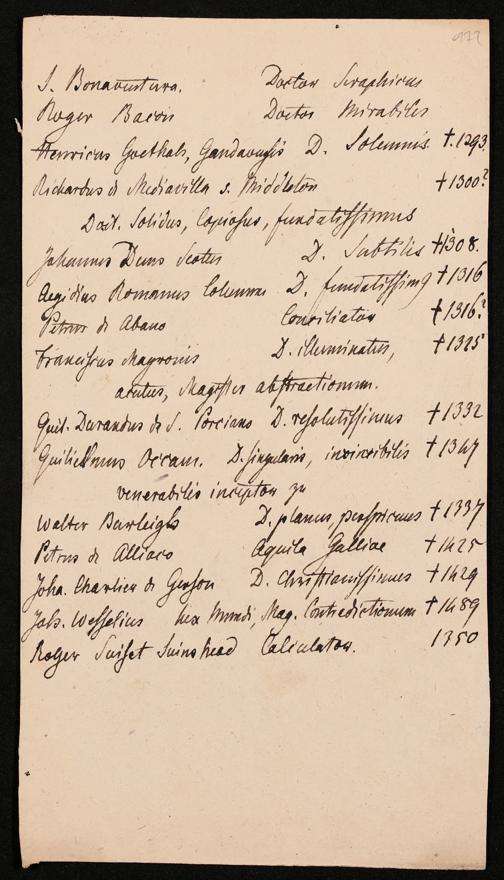 972
S. Bonaventura. Doctor Seraphicus
Roger Bacon Doctor Mirabilis
Henricus Goethals, Gandavensis D. Solemnis †. 1293.
Richardus de Mediavilla s. Middleton † 1300?
Doct. Solidus, Copiosus, fundatissimus
Johannes Duns Scotus D. Subtilis † 1308.
Aegidius Romanus Columna D. fundatissim9 † 1316
Petrus de Abano Conciliator † 1316?
Franciscus Mayronis D. illuminatus, † 1325
acutus, Magister abstractionum.
Guil. Durandus de S. Porciano D. resolutissimus † 1332
Guilielmus Occam. D. singularis, invincibilis † 1347
venerabilis inceptor
Walter Burleigh D. planus, perspicuus † 1337
Petrus de Alliaco Aquila Galliae † 1425
Joha. Charlier de Gerson D. Christianissimus † 1429
Joh. Wesselius lux Mundi, Mag. Contradictionum † 1489
Roger Suiset Suinshead Calculator. 1350